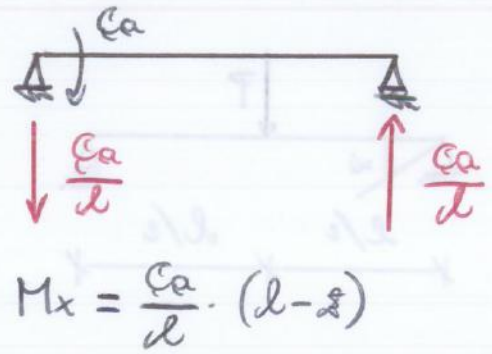 Ca
Ca/l
Ca/l
Mx = Ca/l · (l-x)